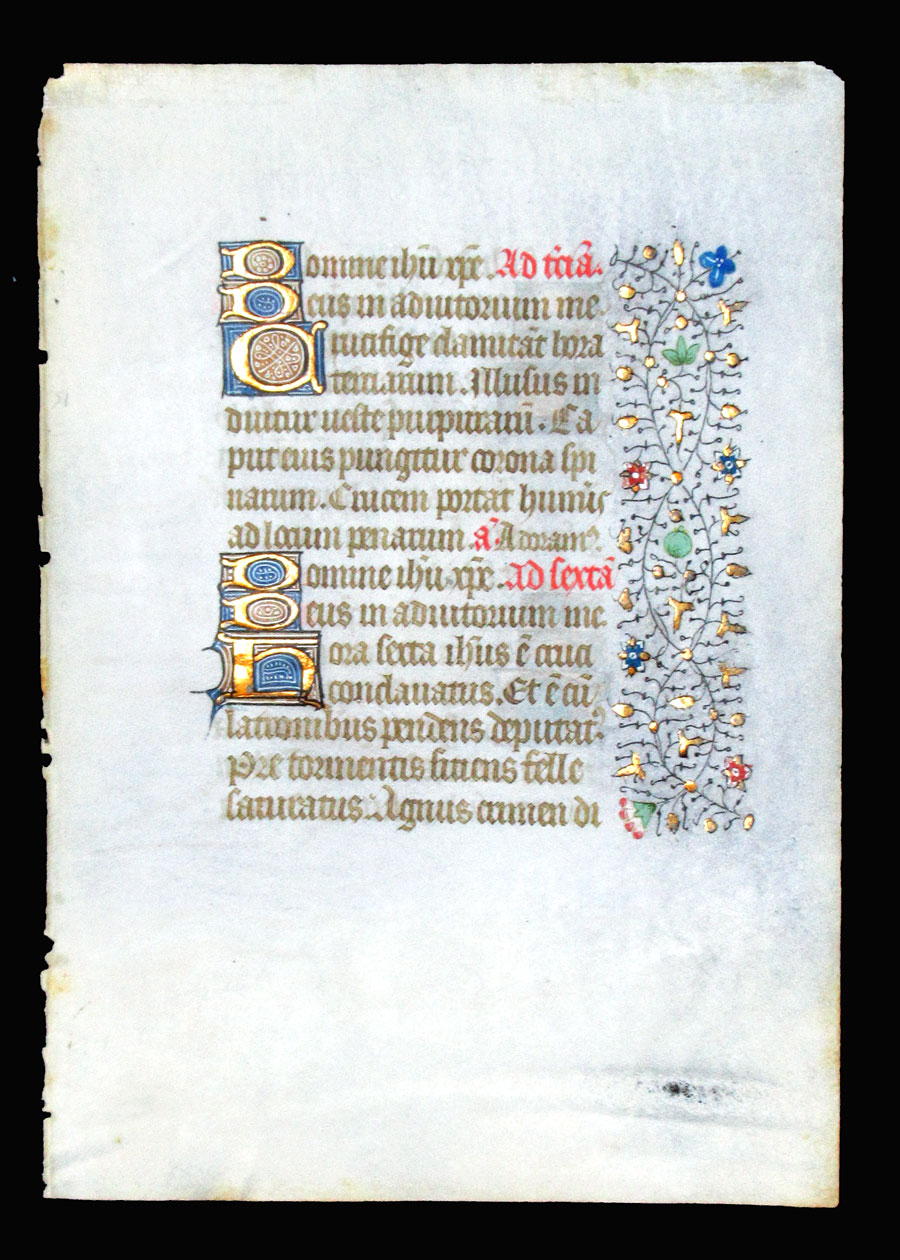 Domine ihū xp̄e. Ad tciā.
Deus in adiutorium me.
Crucifige clamitāt hora
terciarum. Illusus in
duitur ueste purpurarū. Ca
put eius pungitur corona spi
narum. Crucem portat humis
ad locum penarum. ā. Adoram⁹.
Domine ihū xp̄e. Ad sextā
Deus in adiutorium me.
Hora sexta ih̄us ē cruci
conclauatus. Et ē cū
latronibus pendens deputat⁹.
Pre tormentis sitiens felle
saturatus. Agnus crimen di